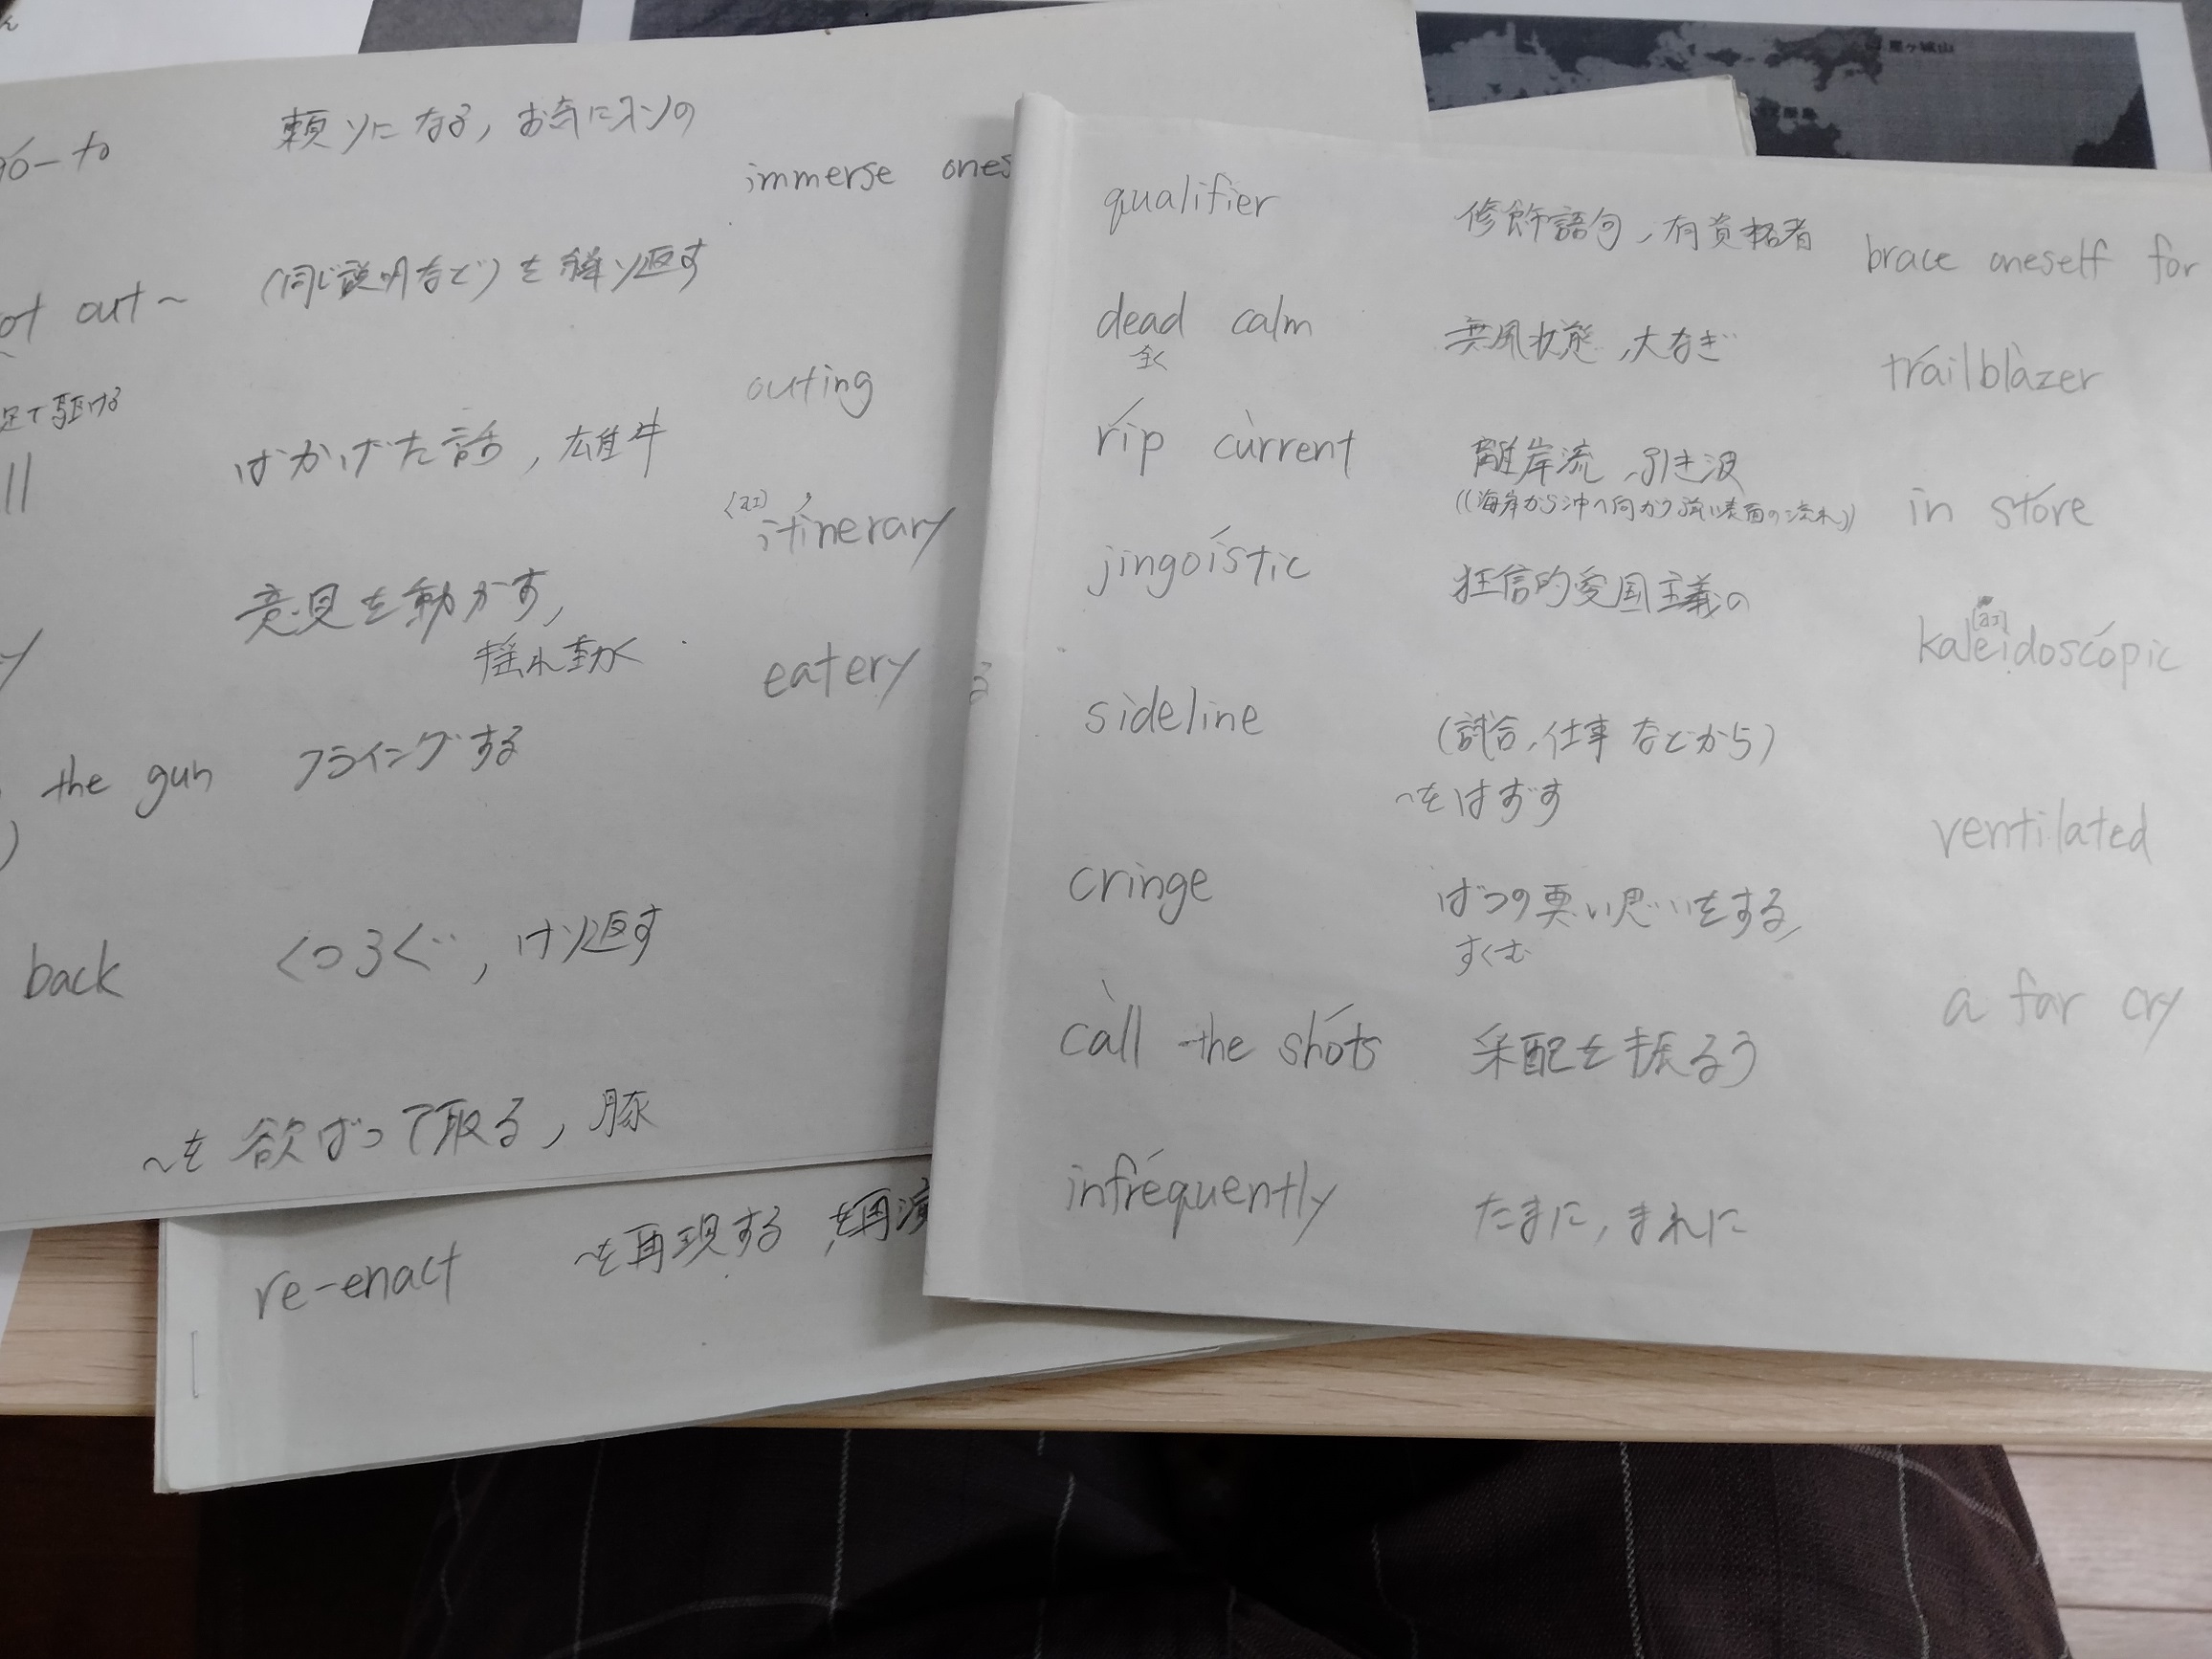 go-to 頼りになる, お気に入りの
immerse ones
out~ (同じ説明など)を繰り返す
outing
足で駆ける
ばかげた話, 雄牛
[aɪ]
itinerary
意見を動かす,
揺れ動く
eatery
the gun フライングする
back くつろぐ, けり返す
~を欲ばって取る, 豚
re-enact ~を再現する, を再演
qualifier 修飾語句, 有資格者
brace oneself for
dead calm 無風状態, 大なぎ
全く
trailblazer
rip current 離岸流, 引き波
((海岸から沖へ向かう強い表面の流れ))
in store
jingoistic 狂信的愛国主義の
[aɪ]
kaleidoscopic
sideline (試合, 仕事などから)
~をはずす
ventilated
cringe ばつの悪い思いをする,
すくむ
a far cry
call the shots 采配を振るう
infrequently たまに, まれに